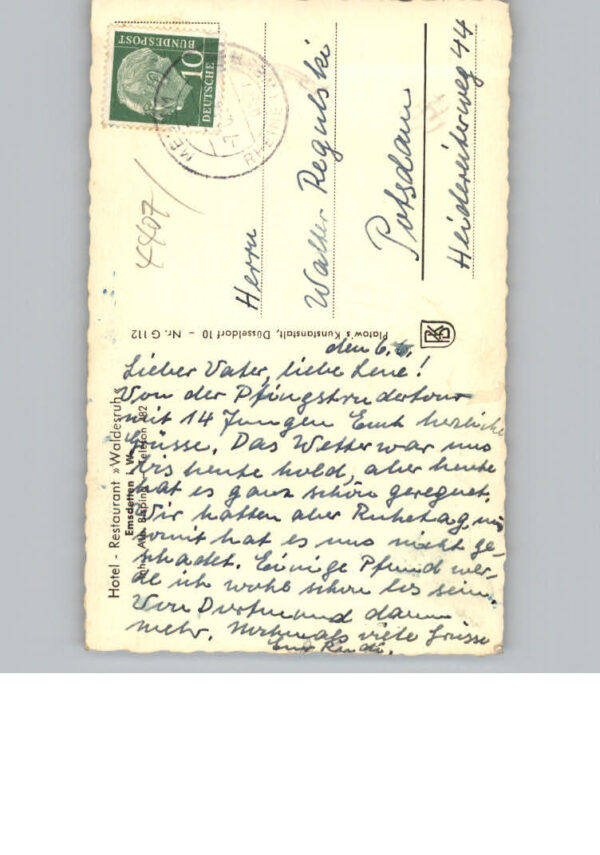 DEUTSCHE
BUNDESPOST
10
4407
Herrn
Walter Regulski
Potsdam
Heidereiterweg 44
Platow's Kunstanstalt, Düsseldorf 10 – Nr. G 112
Hotel - Restaurant »Waldesruh«
Emsdetten i. W.
den 6. 6.
Lieber Vater, liebe Lene!
Von der Pfingstrudertour
mit 14 Jungen Euch herzliche
Grüsse. Das Wetter war uns
bis heute hold, aber heute
hat es ganz schön geregnet.
Wir hatten aber Ruhetag und
somit hat es uns nicht ge-
schadet. Einige Pfund wer-
de ich wohl schon los sein.
Von Dortmund dann
mehr. Nochmals viele Grüsse